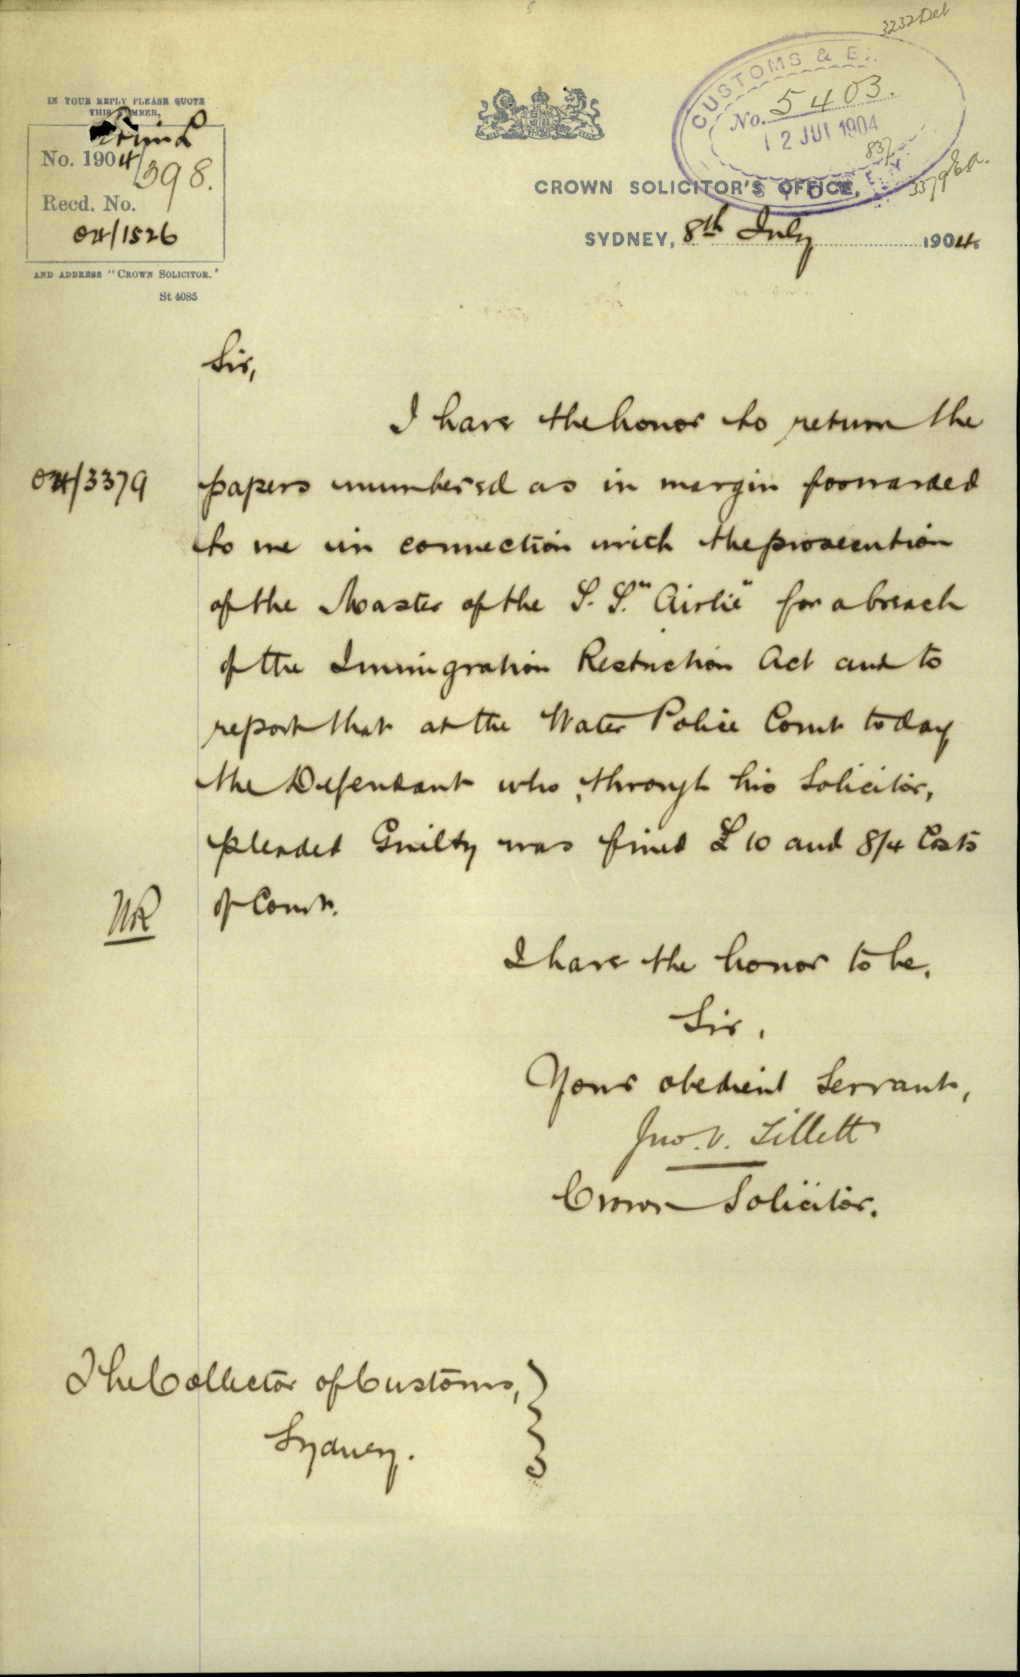 3232 Det
IN YOUR REPLY PLEASE QUOTE
THIS NUMBER,
No. 1904/398.
Recd. No.
04/1526
AND ADDRESS "CROWN SOLICITOR."
St 4085
CUSTOMS & E
No. 5403.
12 JUL 1904
837
3379
CROWN SOLICITOR'S OFFICE,
SYDNEY, 8th July 1904.
Sir,
I have the honor to return the
04/3379 papers numbered as in margin forwarded
to me in connection with the prosecution
of the Master of the S. S. "Airlie" for a breach
of the Immigration Restriction Act and to
report that at the Water Police Court today
the Defendant who, through his Solicitor,
pleaded Guilty was fined £10 and 8/4 Costs
of Court.
I have the honor to be,
Sir,
Your obedient Servant,
Jno. V. Tillett
Crown Solicitor.
The Collector of Customs,
Sydney.